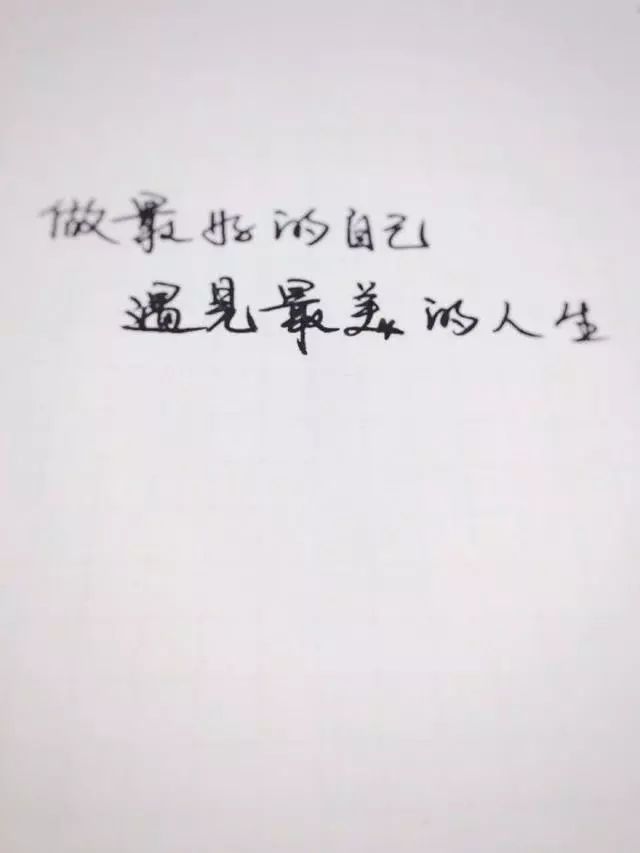 做最好的自己
遇见最美的人生